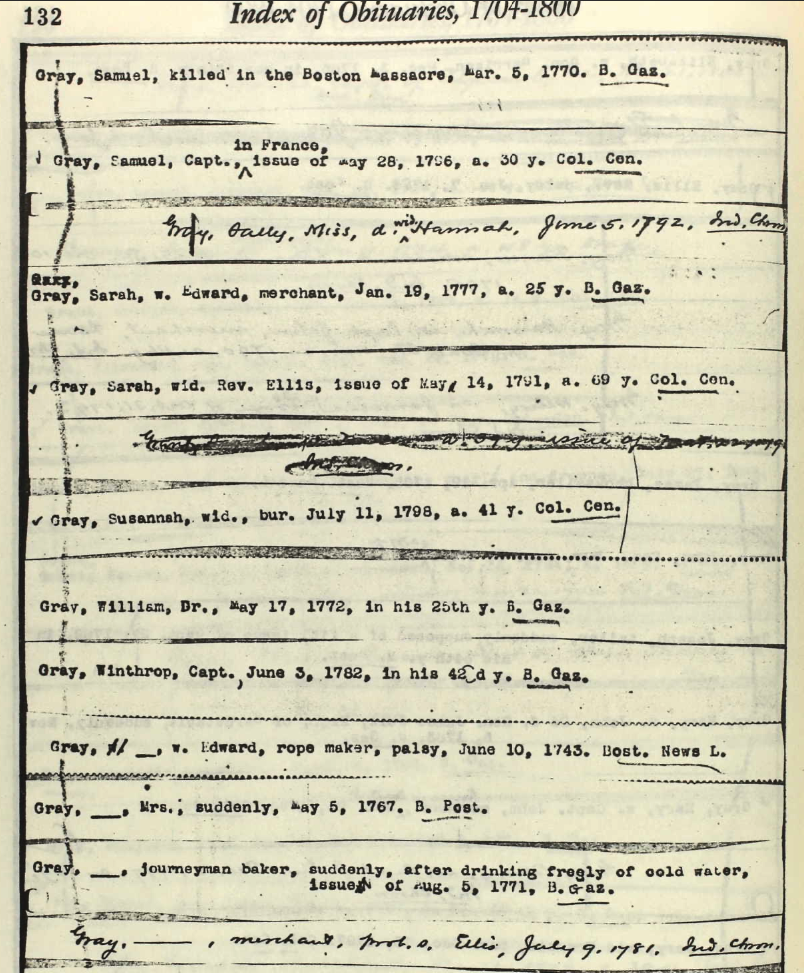 132
Index of Obituaries, 1704-1800
Gray, Samuel, killed in the Boston Massacre, Mar. 5, 1770. B. Gaz.
in France,
Gray, Samuel, Capt., issue of May 28, 1796, a. 30 y. Col. Cen.
Gray, Sally, Miss, d. wid. Hannah, June 5, 1792. Ind. Chron
Gray, Sarah, w. Edward, merchant, Jan. 19, 1777, a. 25 y. B. Gaz.
Gray, Sarah, wid. Rev. Ellis, issue of May 14, 1791, a. 69 y. Col. Cen.
issue of
Gray, Susannah, wid., bur. July 11, 1798, a. 41 y. Col. Cen.
Gray, William, Dr., May 17, 1772, in his 25th y. B. Gaz.
Gray, Winthrop, Capt., June 3, 1782, in his 42d y. B. Gaz.
Gray, __, w. Edward, rope maker, palsy, June 10, 1743. Bost. News L.
Gray, ___, Mrs., suddenly, May 5, 1767. B. Post.
Gray, ___, journeyman baker, suddenly, after drinking freely of cold water,
issue of Aug. 5, 1771, B. Gaz.
Gray, ——, merchant, prob. s. Ellis, July 9, 1781. Ind. Chron.